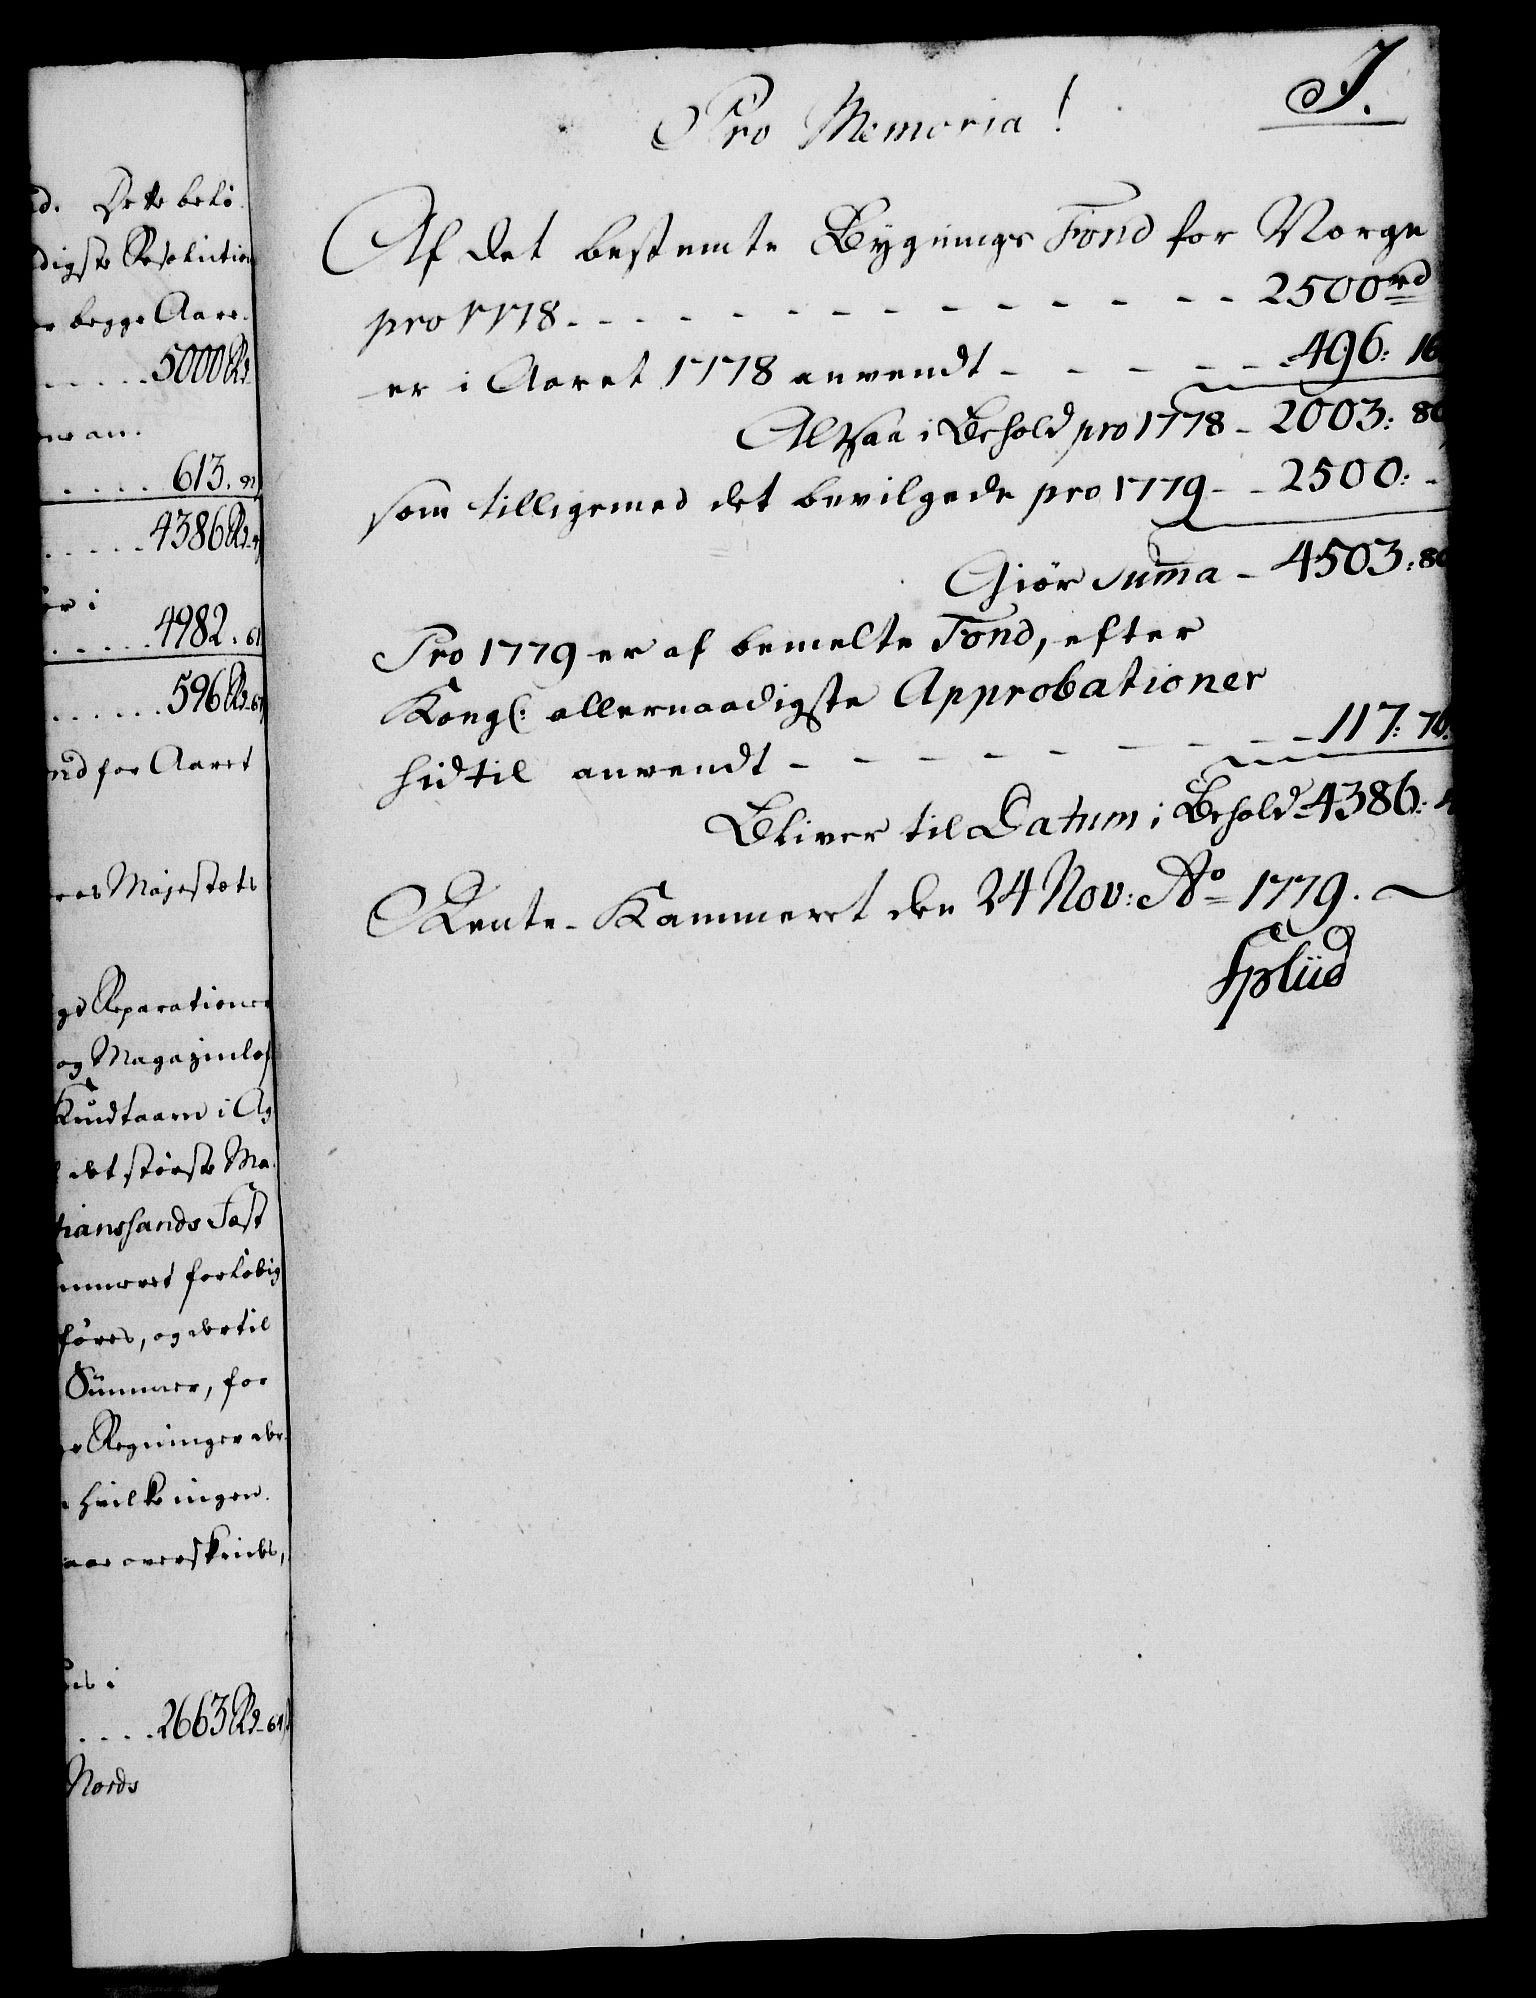 d. Dette belø-
digste Resolution
begge Aare.
. . . . . 5000 Rd
. . . . . 613. 92
. . . . . 4386 Rd. 4
i
. . . . . 4982. 61
. . . . . . 596 Rd. 67
nd for Aaret
res Majestæts
ge Reparationer
og Magazinlof
Knudtaarn i Ag
det største Ma-
tianssands Fæst
mmeret forløbig
føres, og dertil
Summer, for
Regninger der-
hvilke ingen
aar overskrides,
i
. . . . 2663 Rd. 64
Nords
I.
Pro Memoria!
Af det bestemte Bygnings Fond for Norge
pro 1778. - - - - - - - - - - - - 2500 rd
er i Aaret 1778 anvendt - - - - - - 496: 16
Altsaa i Behold pro 1778 - 2003: 80
som tilligemed det bevilgede pro 1779 - - 2500: -
Giør Summa - 4503: 80
Pro 1779 er af bemelte Fond, efter
Kongl: allernaadigste Approbationer
hidtil anvendt - - - - - - - - - 117: 76
Bliver til Datum i Behold - 4386: 4
Rente-Kammeret den 24 Nov: Ao 1779.